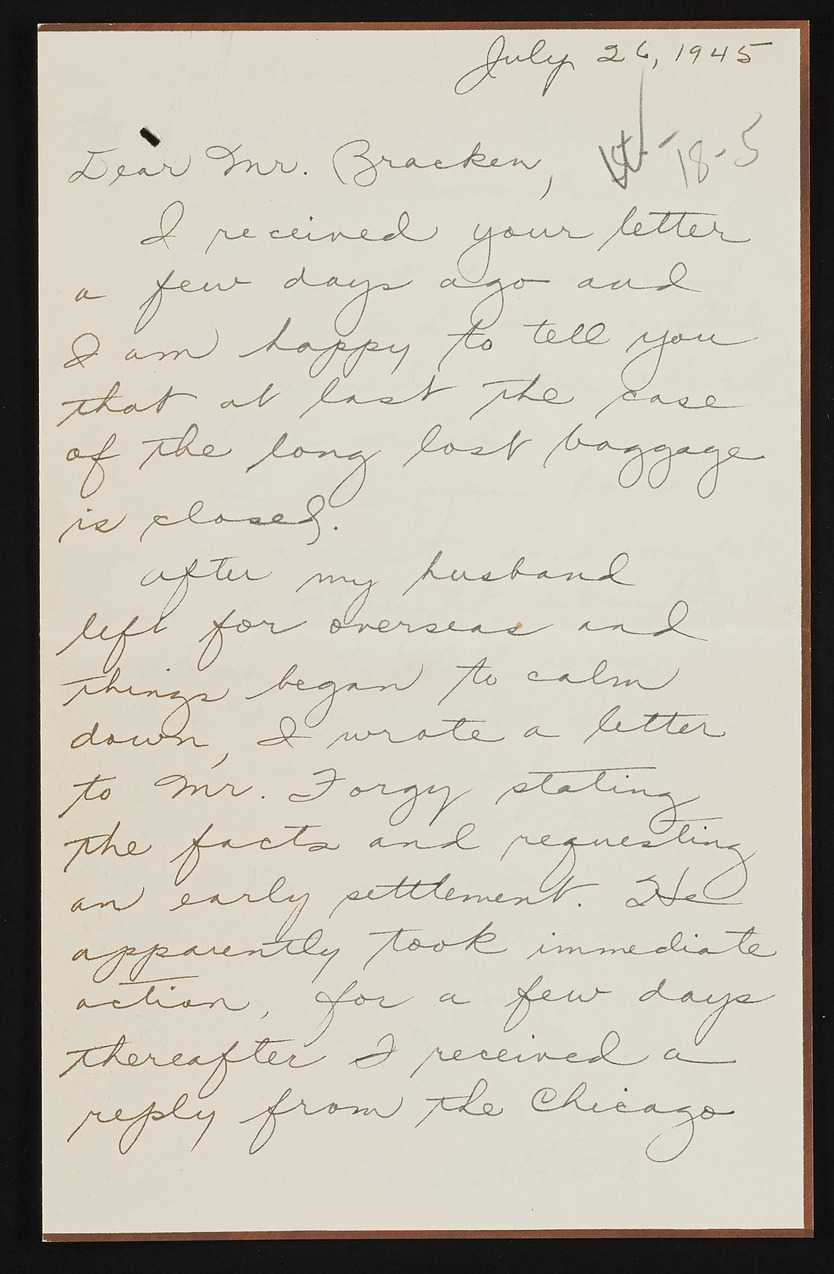 July 26, 1945
Dear Mr. Bracken,
18-5
I received your letter
a few days ago and
I am happy to tell you
that at last the case
of the long lost baggage
is closed.
After my husband
left for overseas and
things began to calm
down, I wrote a letter
to Mr. Forgy stating
the facts and requesting
an early settlement. He
apparently took immediate
action, for a few days
thereafter I received a
reply from the Chicago